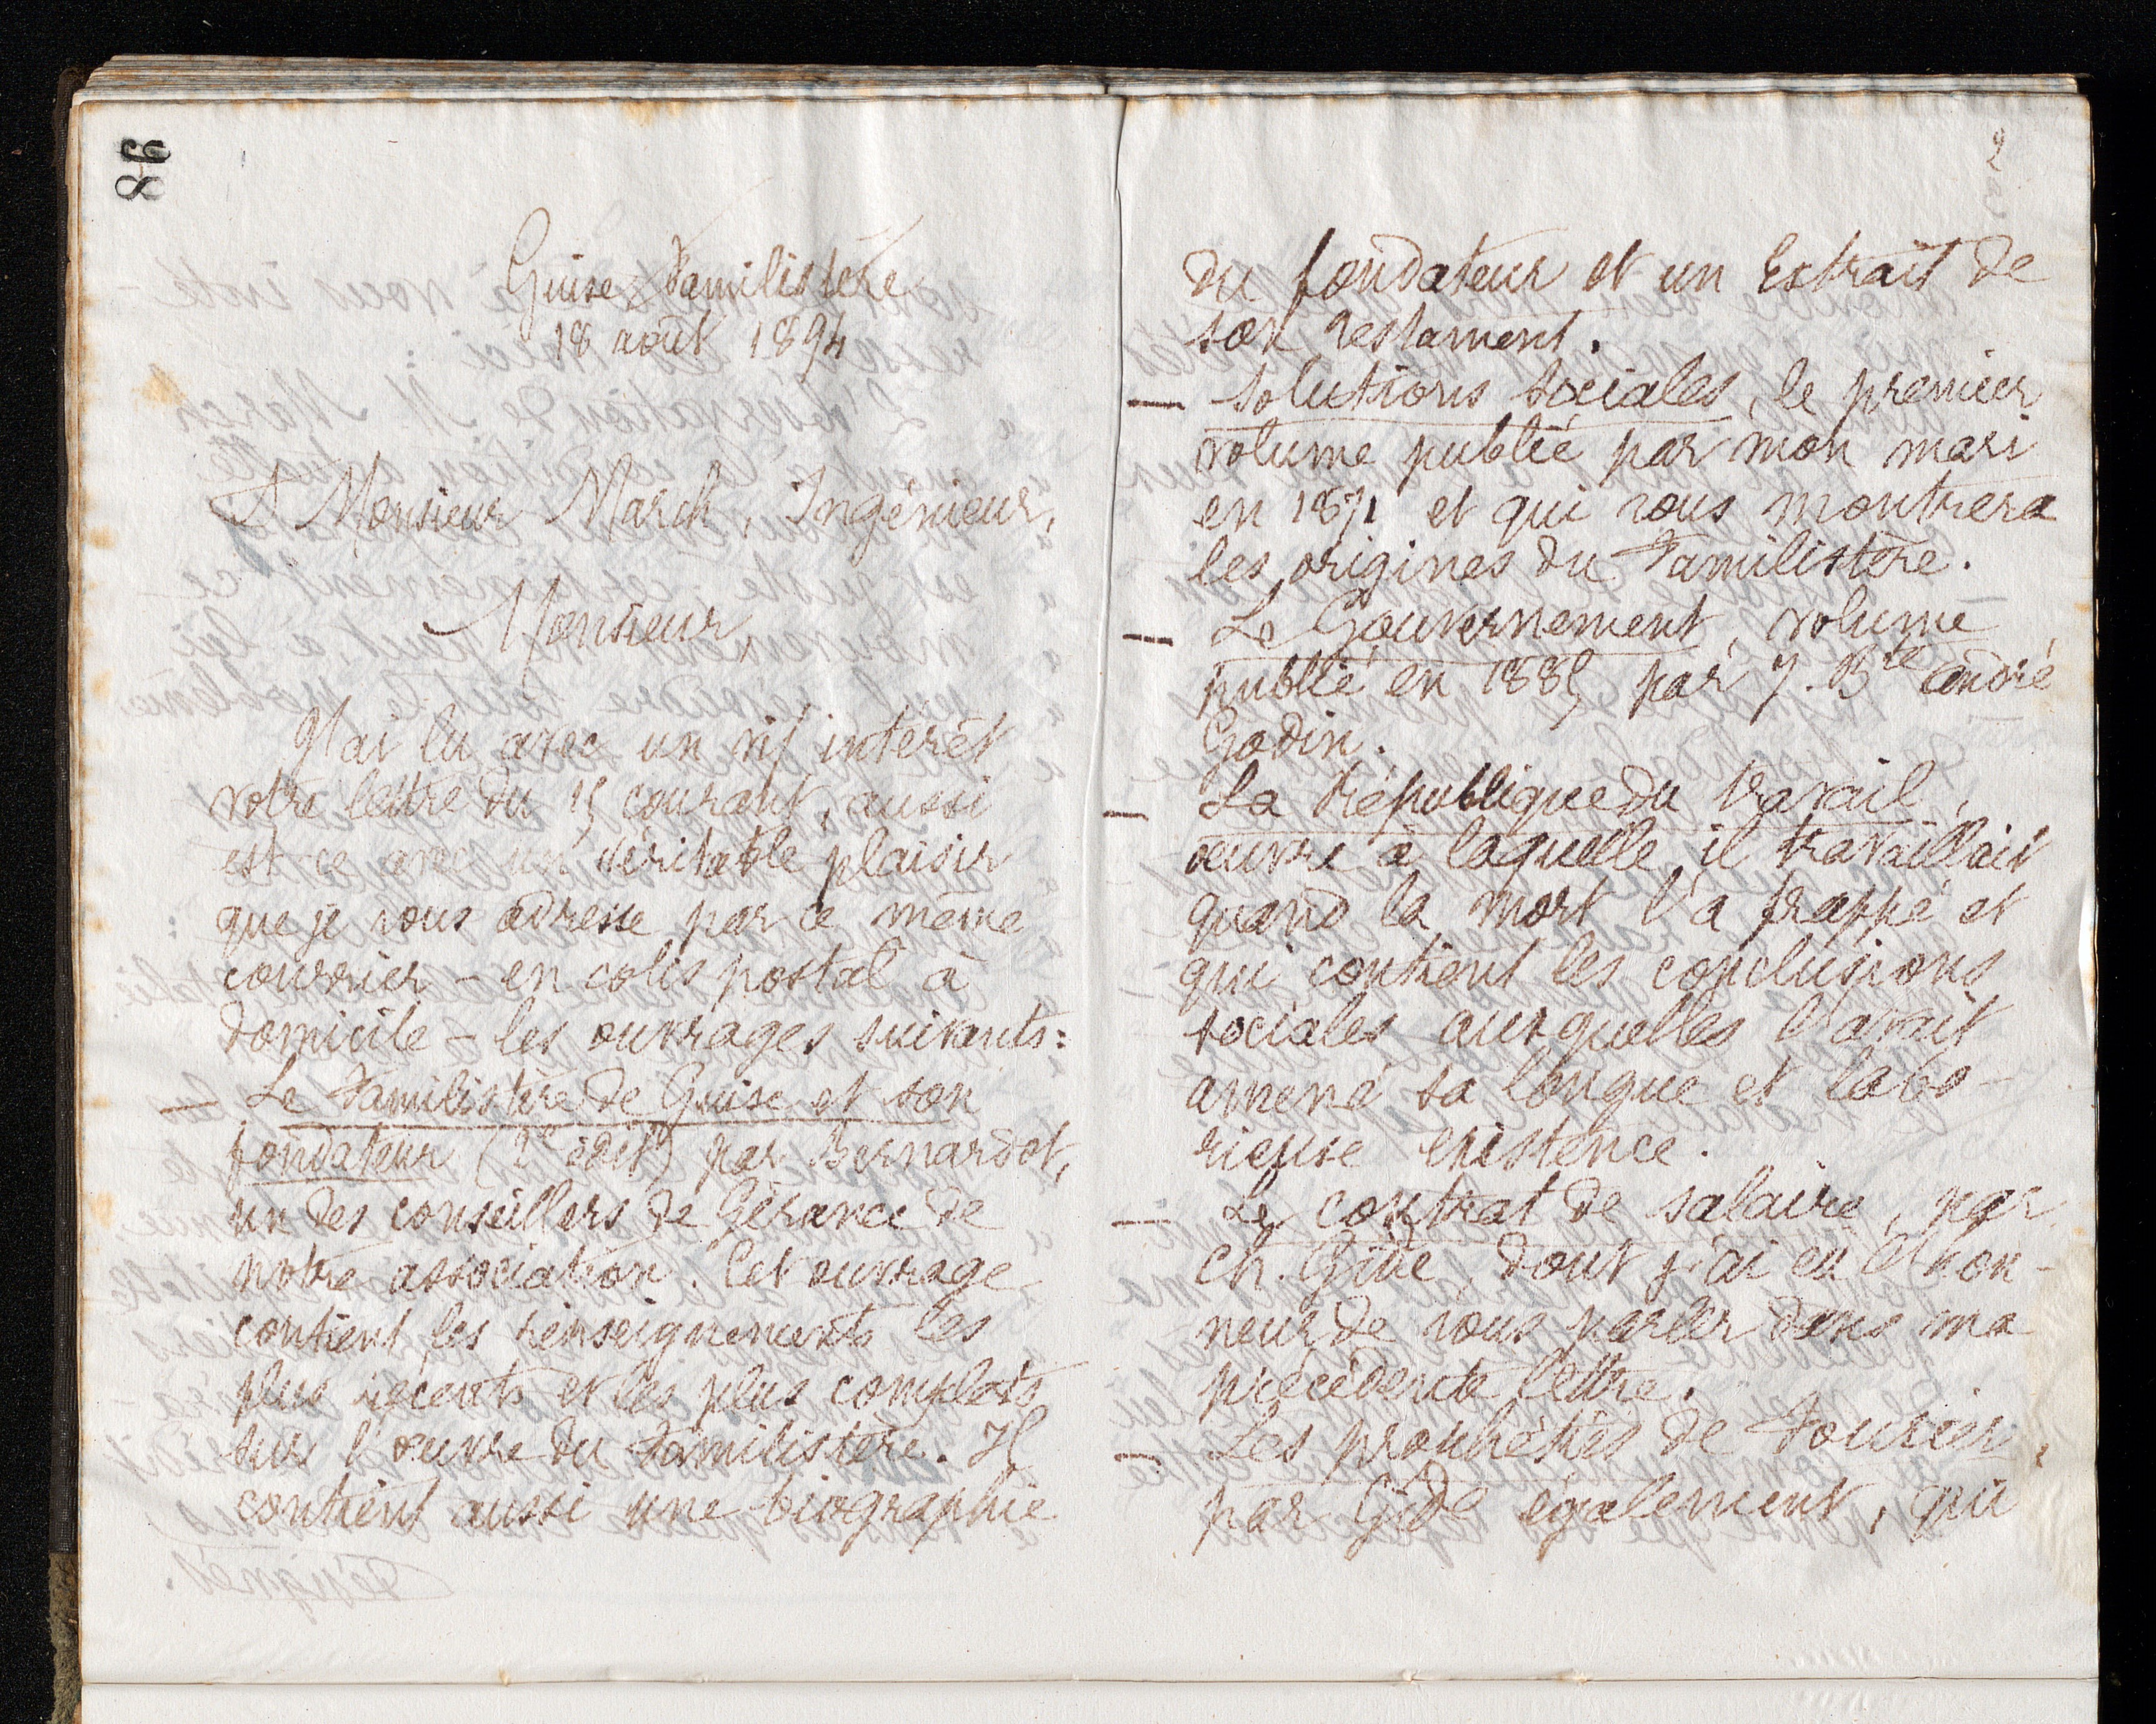 86
Guise Familistère
18 août 1894
A Monsieur March, Ingénieur,
Monsieur,
J'ai lu avec un vif intérêt
votre lettre du 15 courant, aussi
est-ce avec un véritable plaisir
que je vous adresse par ce même
courrier – en colis postal à
domicile – les ouvrages suivants :
— Le Familistère de Guise et son
fondateur (2e édit) par Bernardot,
un des conseillers de Gérance de
notre association. Cet ouvrage
contient les renseignements les
plus récents et les plus complets
sur l'œuvre du Familistère. Il
contient aussi une biographie
2
du fondateur et un Extrait de
son testament.
— Solutions sociales, le premier
volume publié par mon mari
en 1871 et qui vous montrera
les origines du Familistère.
— Le Gouvernement, volume
publié en 1883 par J. Bte André
Godin.
— La République du Travail,
œuvre à laquelle il travaillait
quand la mort l'a frappé et
qui contient les conclusions
sociales auxquelles l'avait
amené sa longue et labo-
rieuse existence.
— Le contrat de salaire, par
Ch. Gide, dont j'ai eu l'hon-
neur de vous parler dans ma
précédente lettre.
— Les prophéties de Fourier,
par Gide également, qui